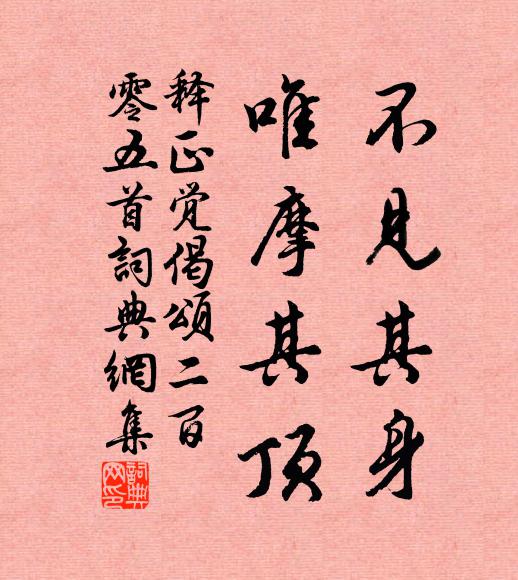 不见其身
唯摩其顶
释正觉偈颂二百
零五首詞典網集
詞典
网印